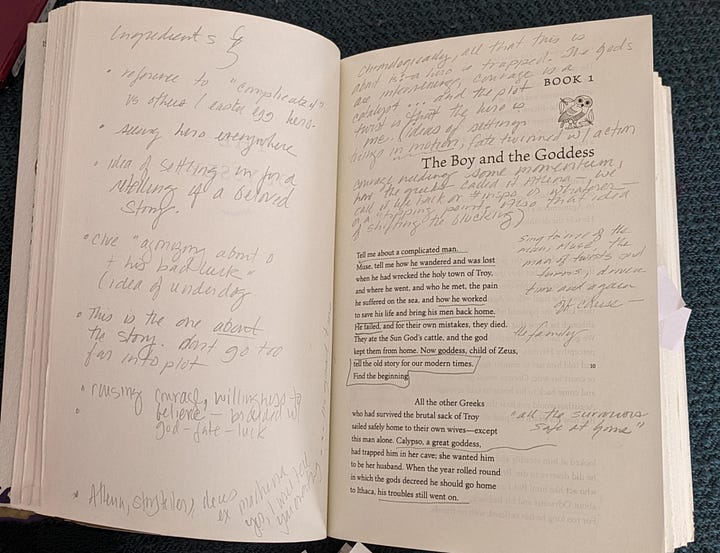 Ingredients
• reference to "complicated"
vs others / easter egg hero.
• seeing hero everywhere
• idea of settling in for a
retelling of a beloved
story.
• cive "agonizing about o
+ his bad luck"
(idea of underdog
• This is the one about
the story. dont go too
far into plot
• raising courage, willingness to
believe – braided w/
god–fate–luck
• Athena, storytellers, deus
ex machina
Chronologically, all that this is
about is a hero is trapped. The Gods
are intervening, courage is a
catalyst ... and the plot
twist is that the hero is
me. (ideas of setting
things in motion, fate twinned w/ action
BOOK 1
The Boy and the Goddess
courage needing some momentum,
how the greeks called it Athena – we
call it life hack or #inspo or whatever –
or a "tipping point." Also that idea
of shifting the blocking)
Tell me about a complicated man.
Muse, tell me how he wandered and was lost
when he had wrecked the holy town of Troy,
and where he went, and who he met, the pain
he suffered on the sea, and how he worked
to save his life and bring his men back home.
He failed, and for their own mistakes, they died.
They ate the Sun God's cattle, and the god
kept them from home. Now goddess, child of Zeus,
tell the old story for our modern times. 10
Find the beginning.
sing to me of the
man, Muse, the
man of twists and
turns; driven
time and again
off course –
the family
All the other Greeks
who had survived the brutal sack of Troy
sailed safely home to their own wives—except
this man alone. Calypso, a great goddess,
had trapped him in her cave; she wanted him
to be her husband. When the year rolled round
in which the gods decreed he should go home
to Ithaca, his troubles still went on.
"all the survivors
safe at home"